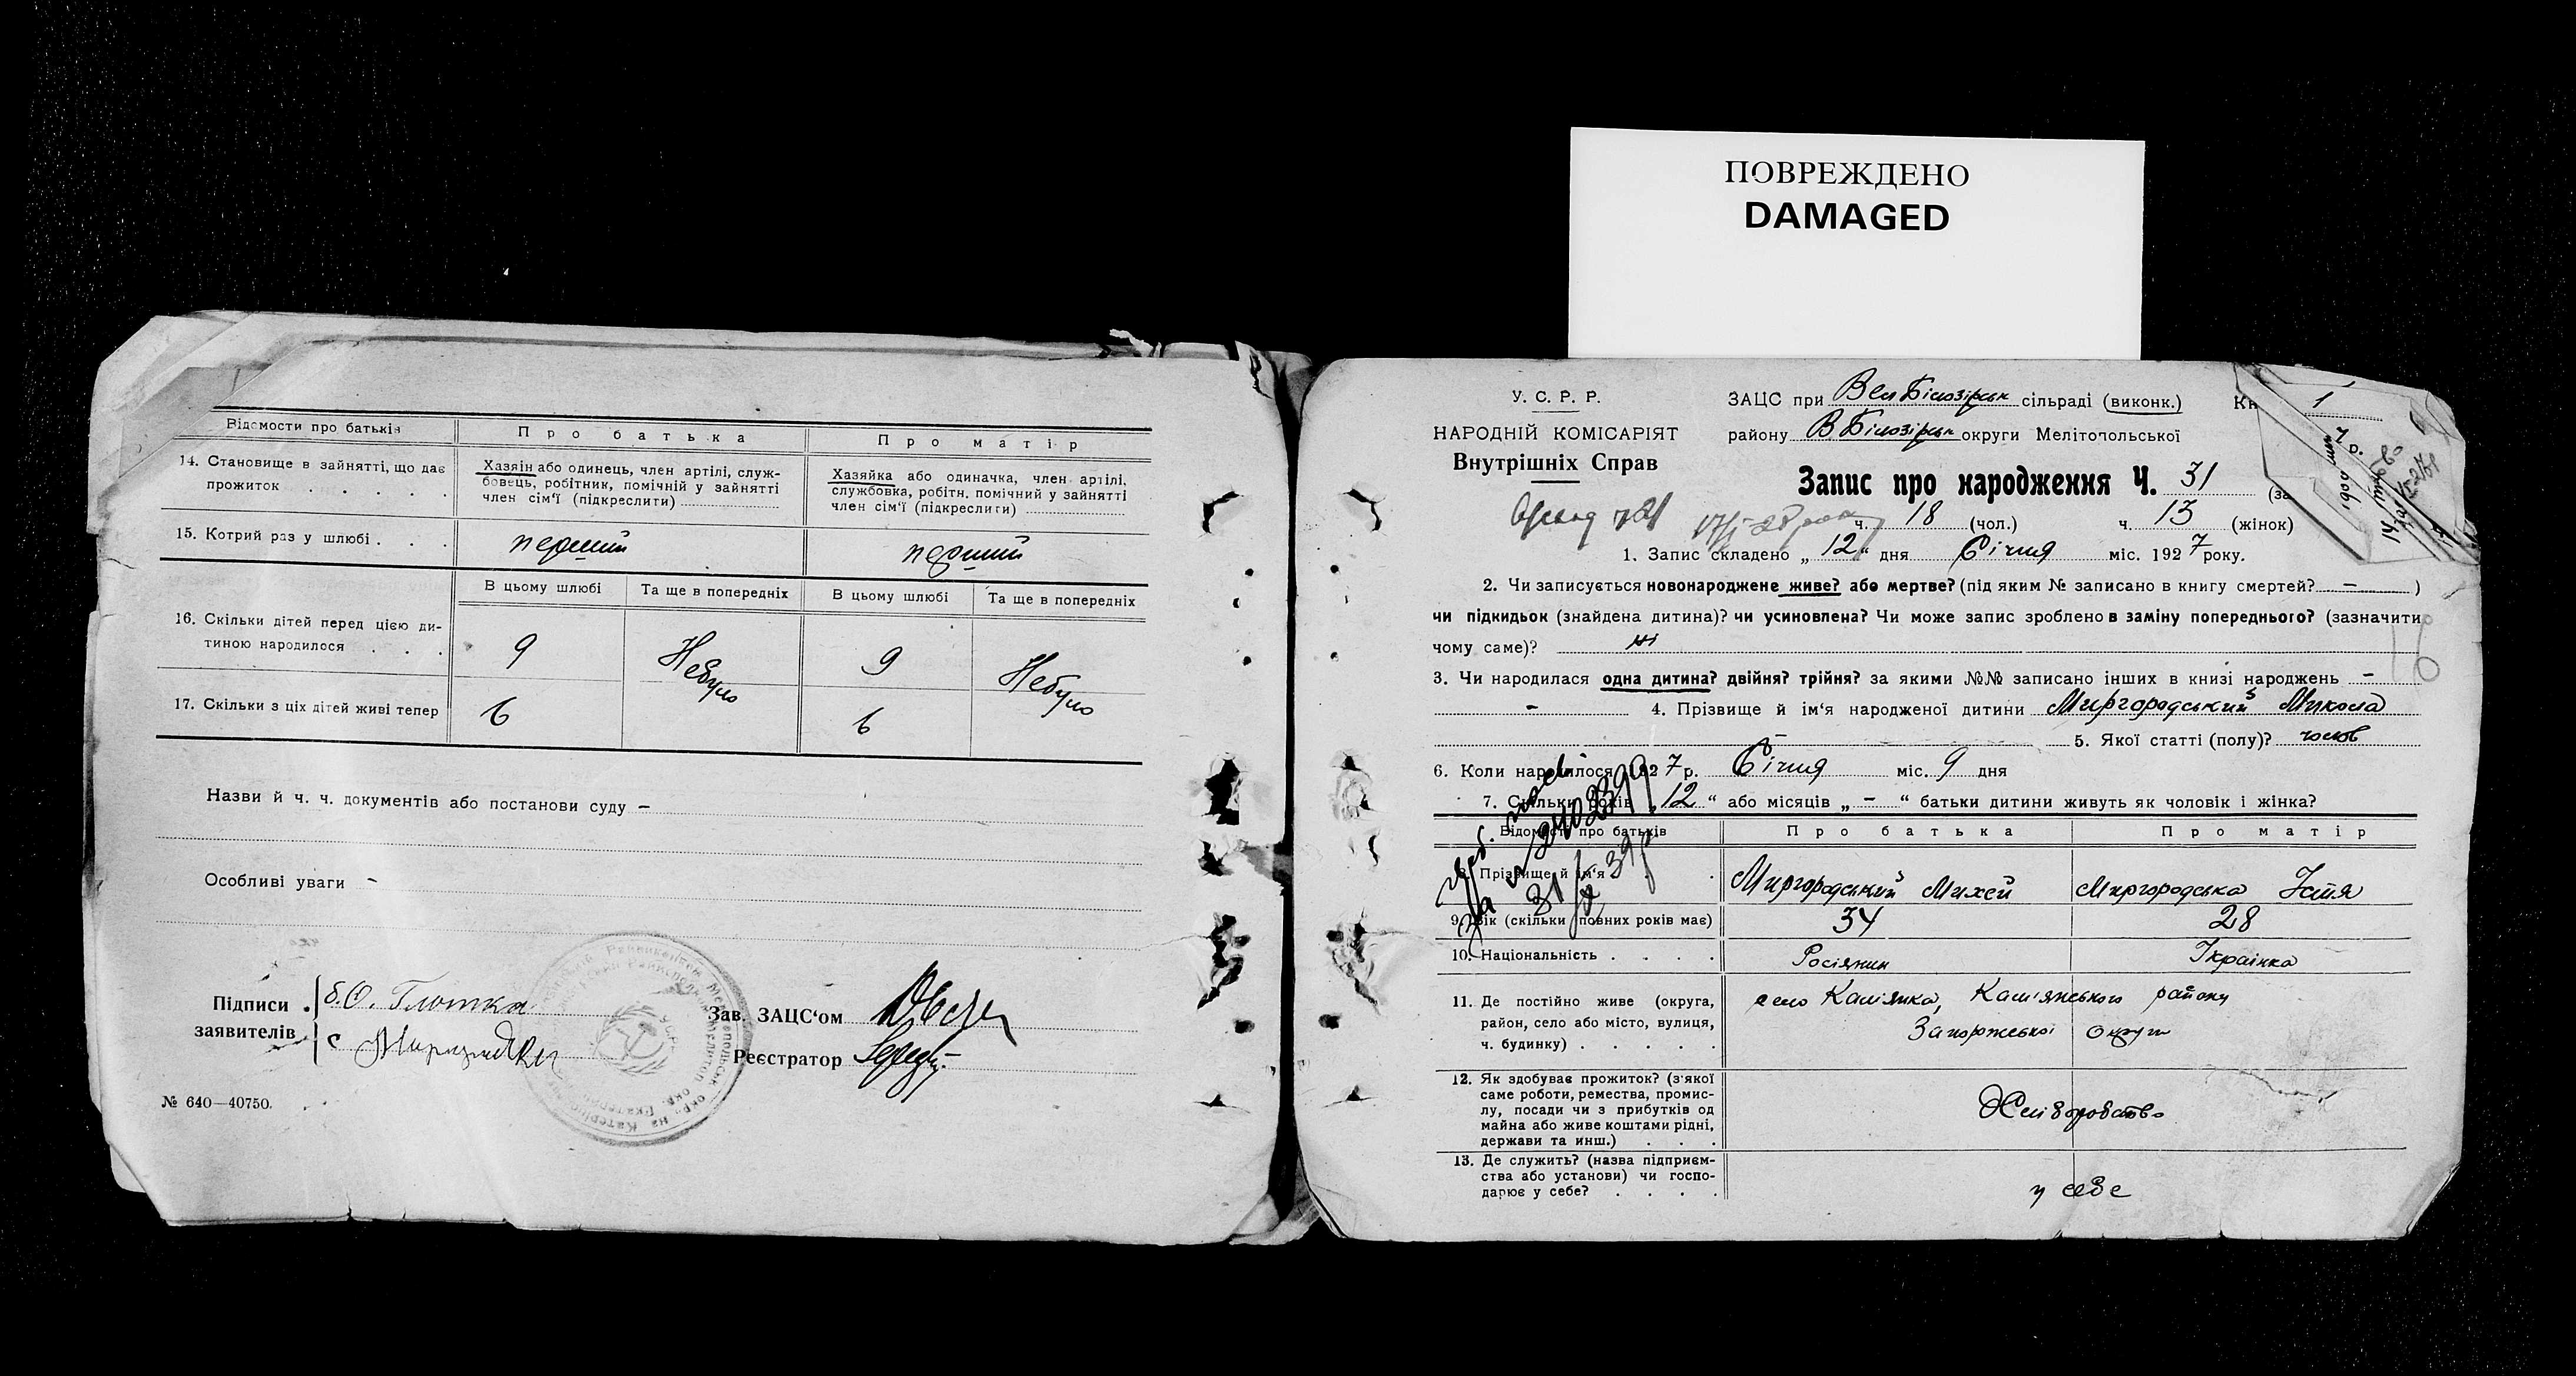 ПОВРЕЖДЕНО
DAMAGED
Відомости про батьків
Про батька
Про матір
14. Становище в зайнятті, що дає
прожиток . . . . .
Хазяїн або одинець, член артілі, служ-
бовець, робітник, помічній у зайнятті
член сім'ї (підкреслити)
Хазяйка або одиначка, член артілі,
службовка, робітн. помічний у зайнятті
член сім'ї (підкреслити)
15. Котрий раз у шлюбі . . .
перший
перший
В цьому шлюбі
Та ще в попередніх
В цьому шлюбі
Та ще в попередніх
16. Скільки дітей перед цією ди-
тиною народилося . . .
9
Небуло
9
Небуло
17. Скільки з ціх дітей живі тепер
6
6
Назви й ч. ч. документів або постанови суду —
Особливі уваги —
Підписи
заявителів
Зав. ЗАЦС'ом
Реєстратор
№ 640—40750.
У. С. Р. Р.
НАРОДНІЙ КОМІСАРІЯТ
Внутрішніх Справ
ЗАЦС при Вел Білозірськ сільраді (виконк.)
Кн 1
району В Білозірськ округи Мелітопольської
Запис про народження Ч. 31
ч. 18 (чол.) ч. 13 (жінок)
1. Запис складено „ 12 “ дня Січня міс. 1927 року.
2. Чи записується новонароджене живе? або мертве? (під яким № записано в книгу смертей? — )
чи підкидьок (знайдена дитина)? чи усиновлена? Чи може запис зроблено в заміну попереднього? (зазначити
чому саме)? ні
3. Чи народилася одна дитина? двійня? трійня? за якими №№ записано інших в книзі народжень —
— 4. Прізвище й ім'я народженої дитини Миргородський Микола
— 5. Якої статті (полу)? чолов
6. Коли народилося 1927 р. Січня міс. 9 дня
7. Скільки років „ 12 “ або місяців „ — “ батьки дитини живуть як чоловік і жінка?
Відомости про батьків
Про батька
Про матір
8. Прізвище й ім'я
Миргородський Михей
Миргородська Устя
9. Вік (скільки повних років має)
34
28
10. Національність . . . .
Росіянин
Українка
11. Де постійно живе (округа,
район, село або місто, вулиця,
ч. будинку) . . . . .
село Кам'янка, Кам'янського району
Запоріжської Округи
12. Як здобуває прожиток? (з'якої
саме роботи, ремества, промис-
лу, посади чи з прибутків од
майна або живе коштами рідні,
держави та инш.) . . .
Хліборобство
13. Де служить? (назва підприєм-
ства або установи) чи госпо-
дарює у себе? . . . .
у себе